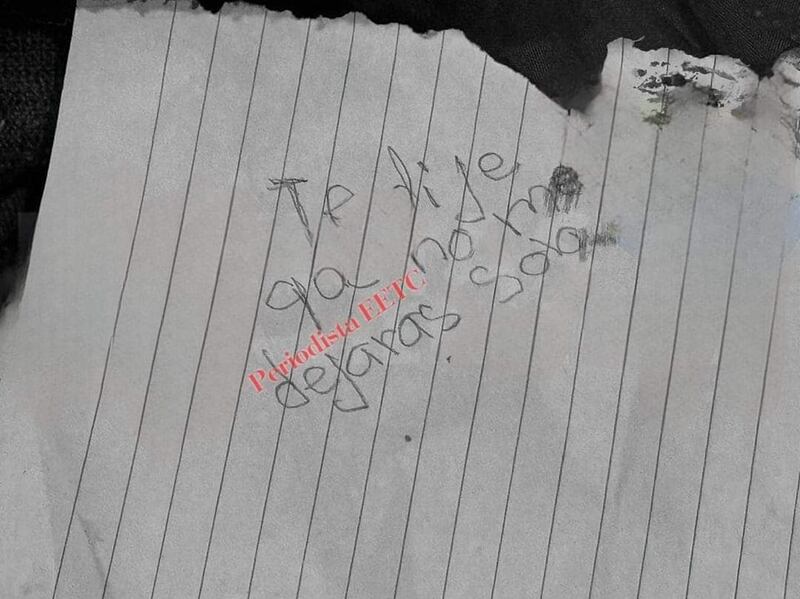 Te dije
qa no me
dejaras sola
Periodista EETC